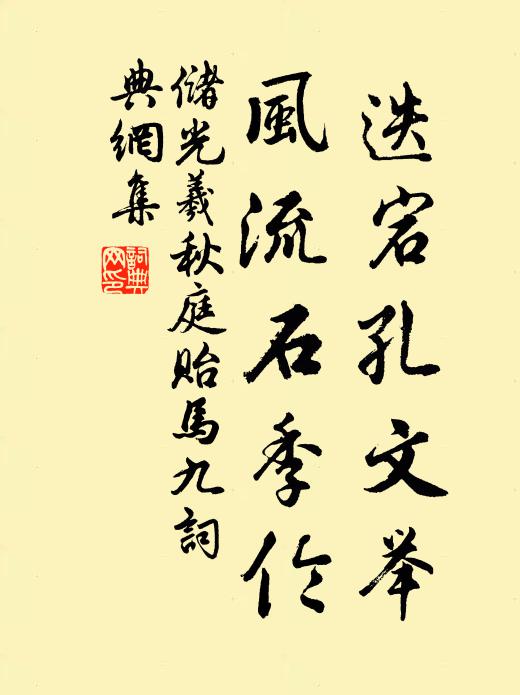 迭宕孔文举
風流石季伦
儲光羲秋庭貽馬九詞
典網集
詞典
网印